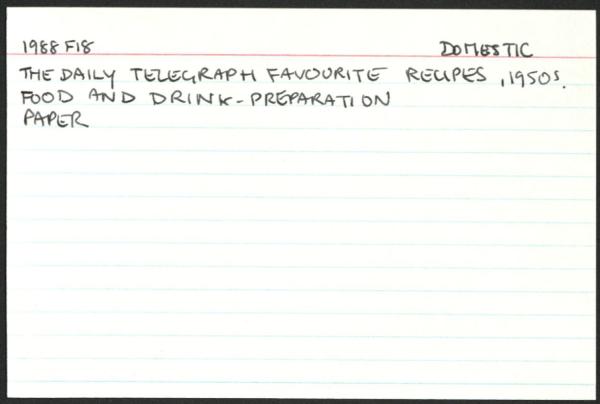 1988 F18 DOMESTIC
THE DAILY TELEGRAPH FAVOURITE RECIPES, 1950s.
FOOD AND DRINK-PREPARATION
PAPER